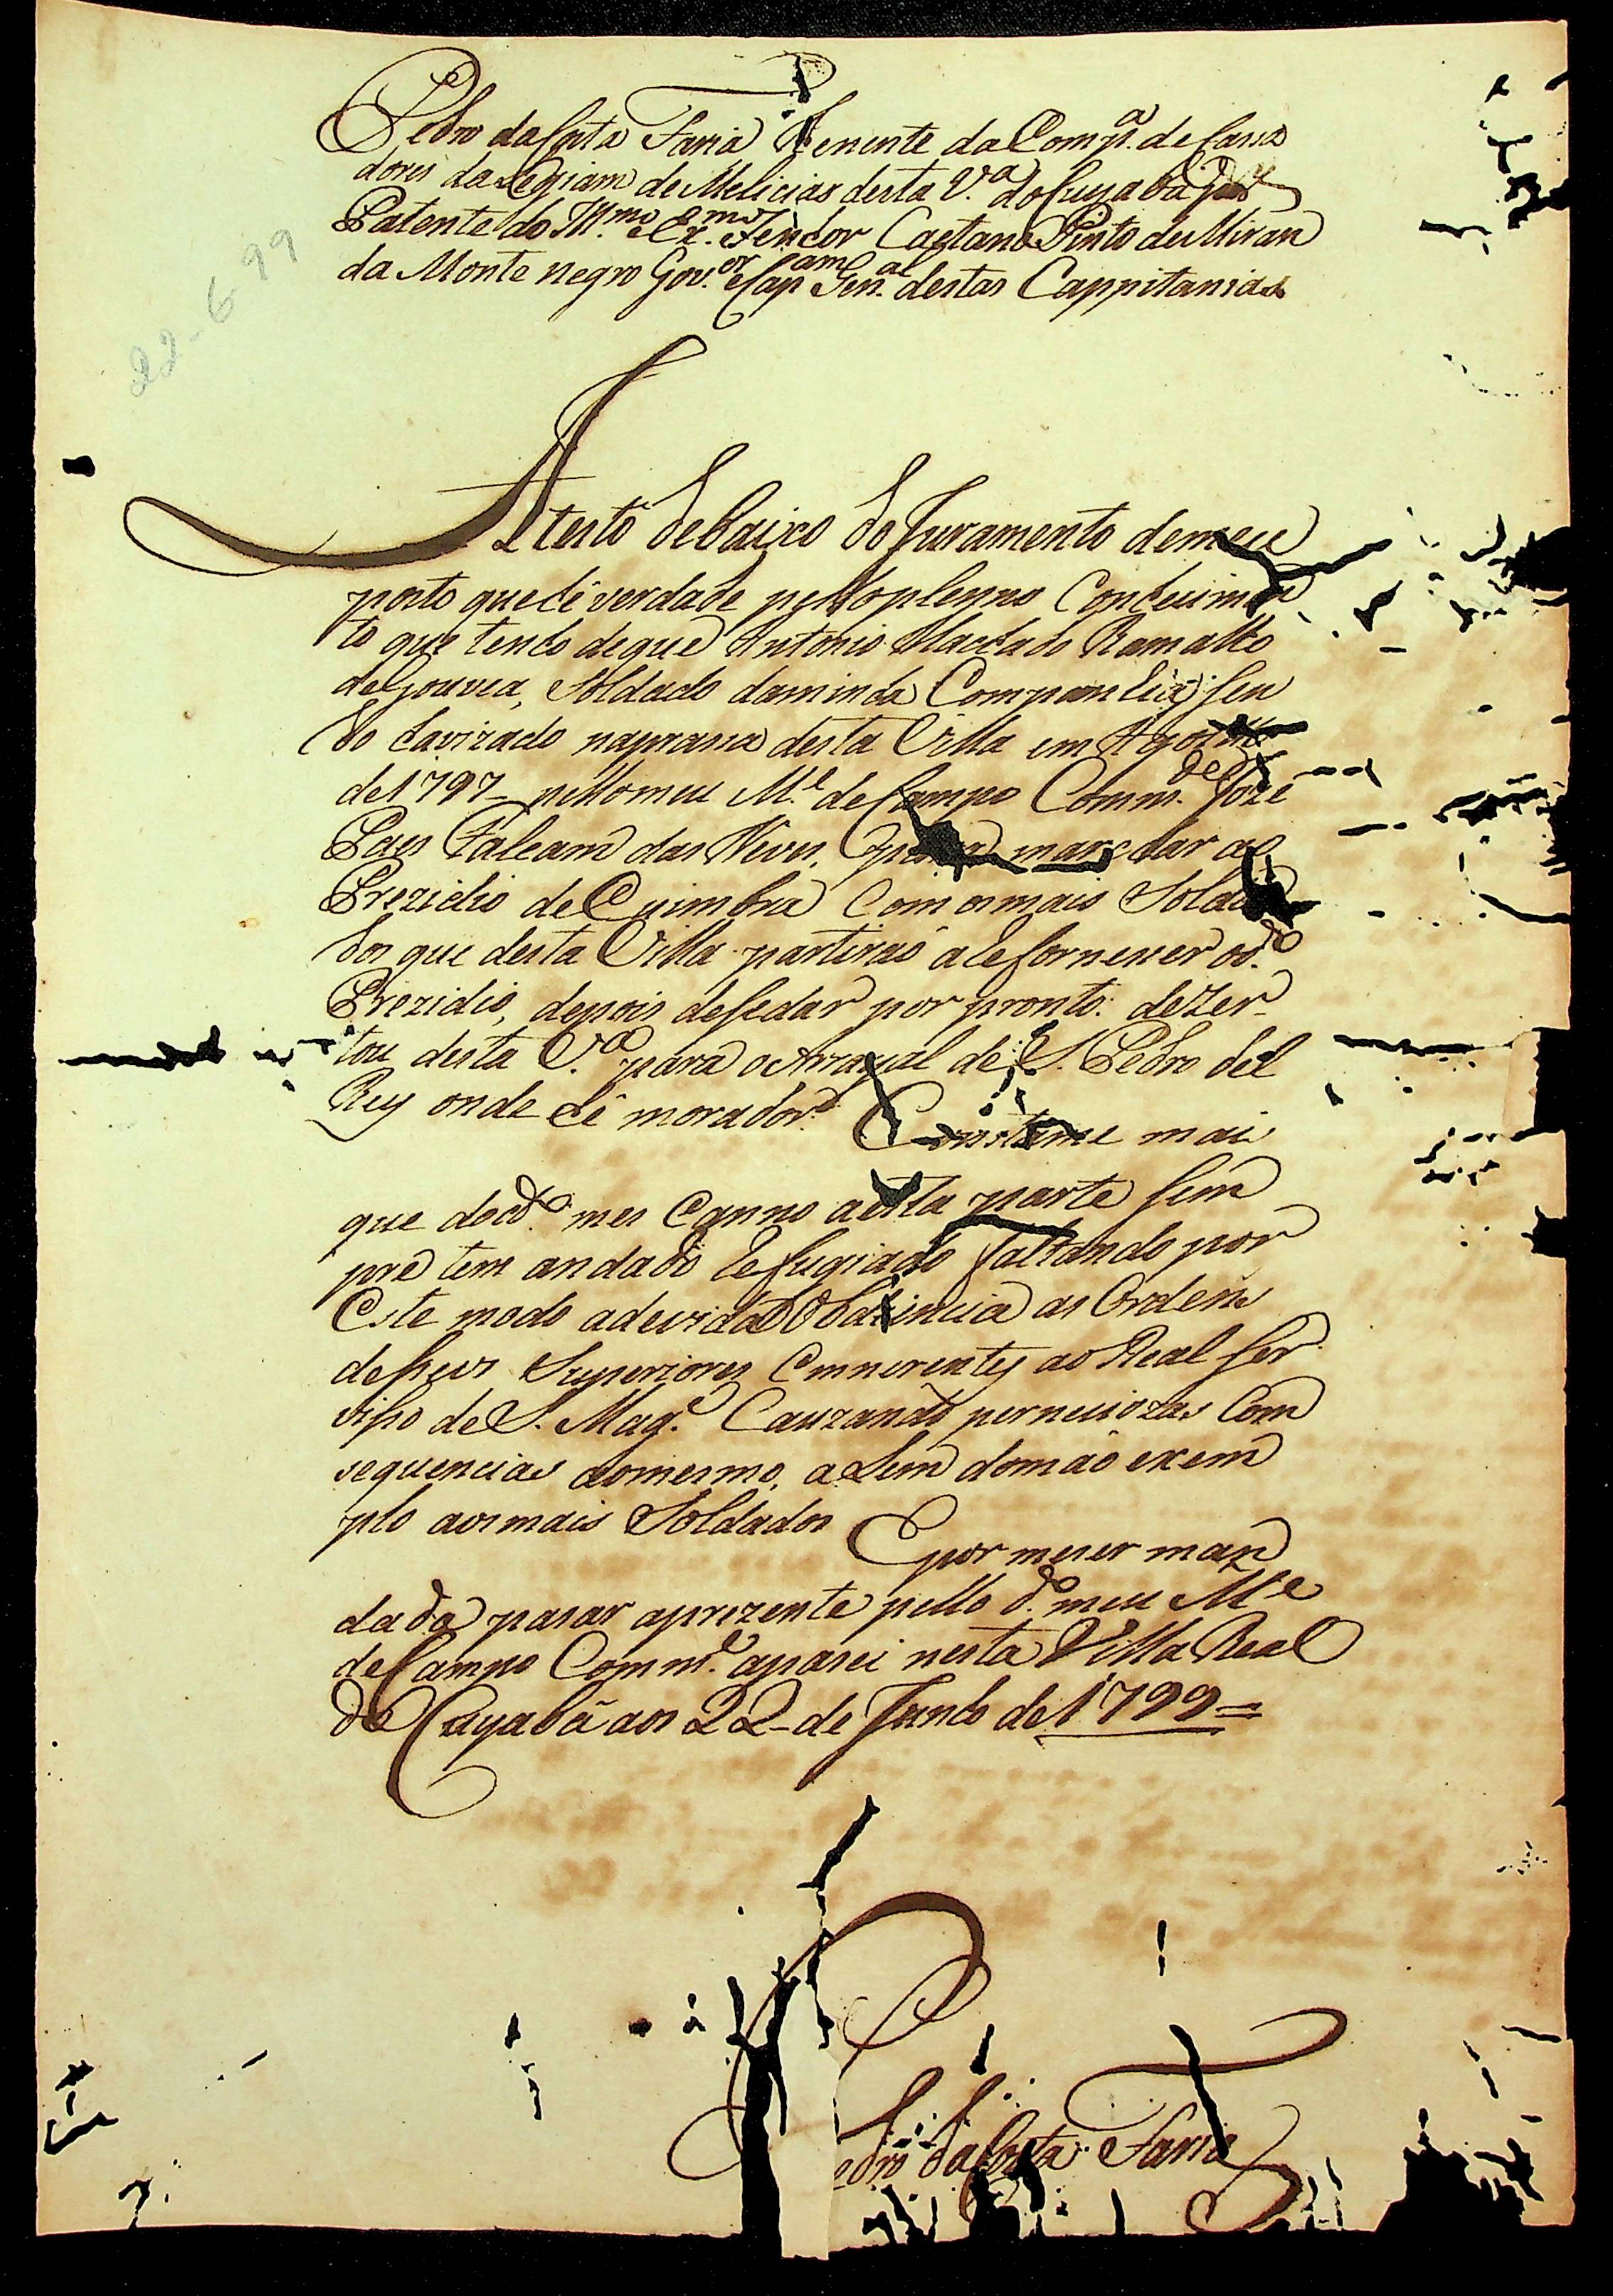 Pedro da Costa Faria Tenente da Comp.ª de Cassa
dores da Legiam de Melicias desta V.ª do Cuyabá por
Patente do Ill.mo e Ex.mo Senhor Caetano Pinto de Miran
da Monte negro Gov.or e Cap.am Gen.al destas Cappitanias
22-6-99
Atesto debaixo do Juramento de meu
posto que hé verdade pello plenno Conhecimen
to que tenho de que Antonio Machado Ramalho
de Gouvea, Soldado da minha Companhia, sen
do havizado na prassa desta Villa em Agosto
de 1797 pello meu M.e de Campo Comm.de Jozé
Paes Falcam das Neves, para marchar ao
Prezidio de Cuimbra Com os mais Solda
dos que desta Villa partirão a Refornesser o d.º
Prezidio, depois de se dar por pronto: dezer-
tou desta V.ª para o Arrayal de S. Pedro del
Rey onde hê morador. Consta me mais
que do d.º mes e anno a esta parte sem
pre tem andado Refugiado faltando por
Este modo a devida Obediencia as Ordens
de seus Superiores Emnerentes ao Real Ser
viso de S. Mag.e Cauzando perneciozas Com
sequencias ao mesmo, a Lem do mâo exem
plo aos mais Soldados E por me ser man
dado pasar a prezente pello d.º meu M.e
de Campo Comm.e a pasei nesta Villa Real
do Cuyabá aos 22 de Junho de 1799=
Pedro da Costa Faria